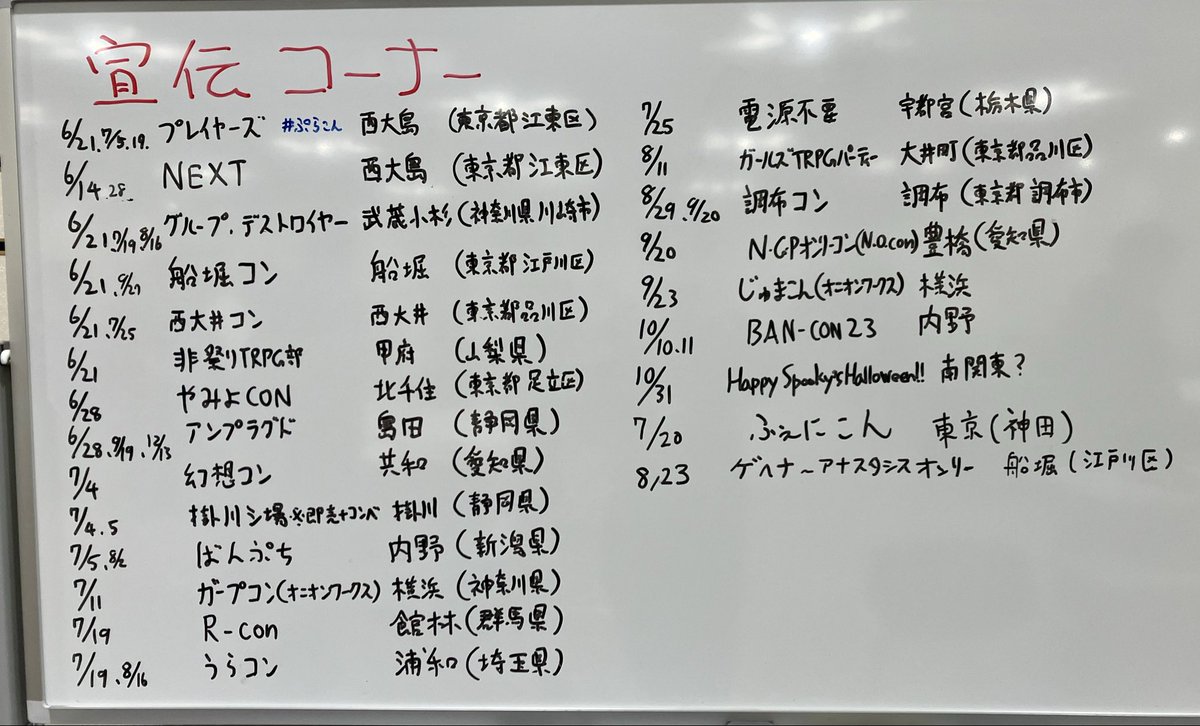 宣伝コーナー
6/21.7/5.19. プレイヤーズ #ぷらこん 西大島 (東京都江東区)
6/14.28. NEXT 西大島 (東京都江東区)
6/21.7/19.8/16 グループ.デストロイヤー 武蔵小杉(神奈川県川崎市)
6/21.9/27 船堀コン 船堀 (東京都江戸川区)
6/21.7/25 西大井コン 西大井 (東京都品川区)
6/21 非祭りTRPG部 甲府 (山梨県)
6/28 やみよCON 北千住 (東京都足立区)
6/28.9/19.12/13 アンプラグド 島田 (静岡県)
7/4 幻想コン 共和 (愛知県)
7/4.5 掛川シ場 ※即売+コンベ 掛川 (静岡県)
7/5.8/2 ばんぷち 内野 (新潟県)
7/11 ガープコン(オニオンワークス) 横浜 (神奈川県)
7/19 R-con 館林(群馬県)
7/19.8/16 うらコン 浦和(埼玉県)
7/25 電源不要 宇都宮(栃木県)
8/11 ガールズTRPGパーティー 大井町(東京都品川区)
8/29.9/20 調布コン 調布 (東京都調布市)
9/20 N-GPオンリーコン(N.O.con) 豊橋(愛知県)
9/23 じゅまこん(オニオンワークス) 横浜
10/10.11 BAN-CON23 内野
10/31 Happy Spooky's Halloween!! 南関東?
7/20 ふぇにこん 東京(神田)
8,23 ゲヘナ〜アナスタシスオンリー 船堀(江戸川区)